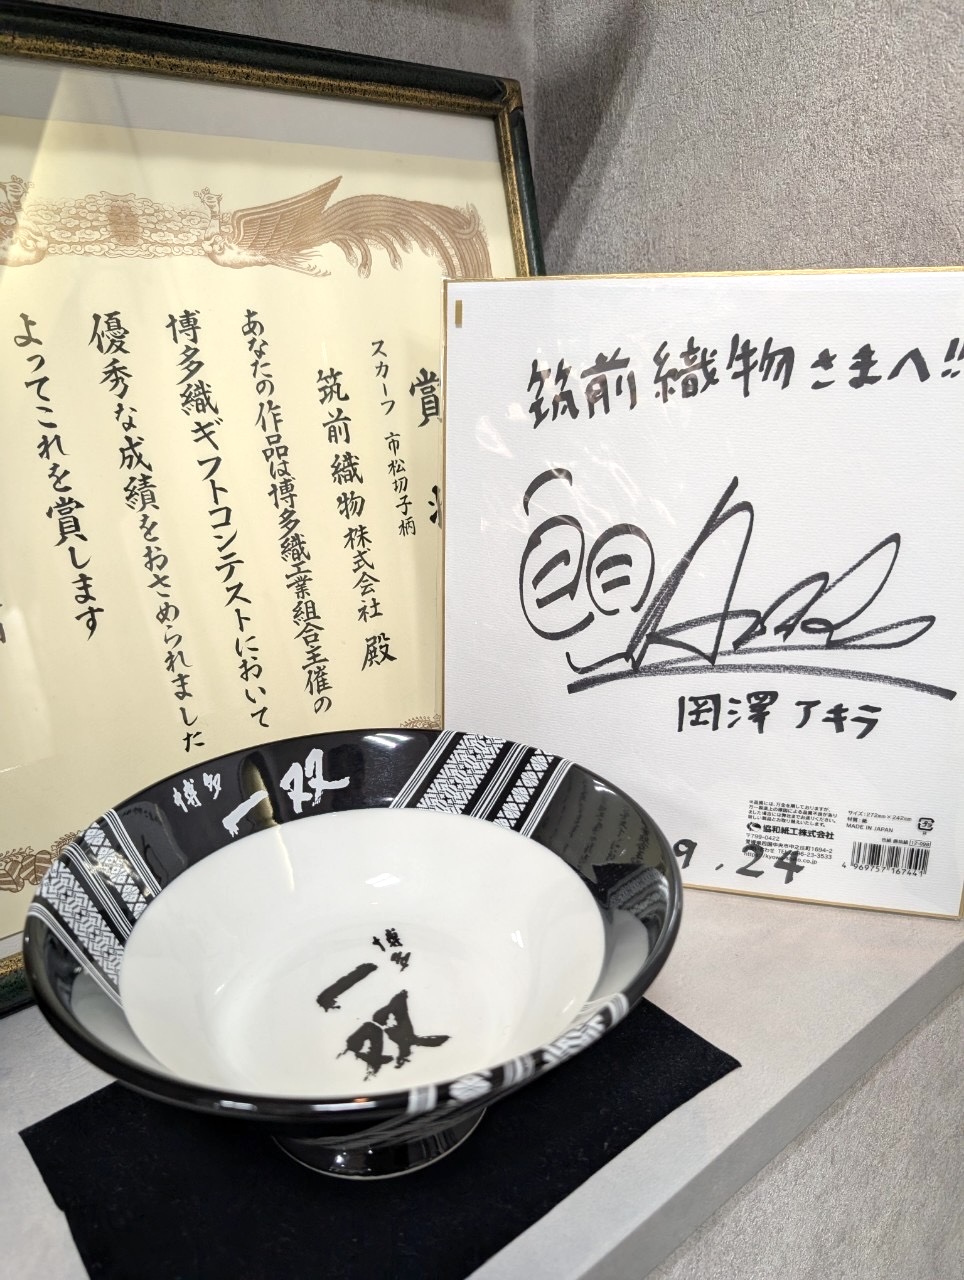 賞
スカーフ 市松切子柄
筑前織物株式会社 殿
あなたの作品は博多織工業組合主催の
博多織ギフトコンテストにおいて
優秀な成績をおさめられました
よってこれを賞します
筑前織物さまへ!!
岡澤アキラ
9.24
サイズ:272mm×242mm
MADE IN JAPAN
協和紙工株式会社
〒799-0422
4 969757 167441
博多
一双
博多
一双